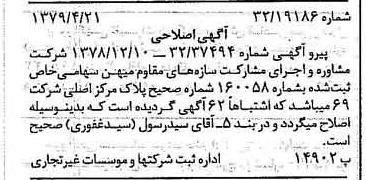 شماره ۳۲/۱۹۱۸۶ ۱۳۷۹/۴/۲۱
آگهی اصلاحی
پیرو آگهی شماره ۳۲/۳۷۴۹۴ — ۱۳۷۸/۱۲/۱۰ شرکت
مشاوره و اجرای مشارکت سازه‌های مقاوم میهن سهامی خاص
ثبت‌شده بشماره ۱۶۰۰۵۸ شماره صحیح پلاک مرکز اصلی شرکت
۶۹ میباشد که اشتباهاً ۶۲ آگهی گردیده است که بدینوسیله
اصلاح میگردد و در بند ۵ـ آقای سیدرسول (سیدغفوری) صحیح
است.
پ ۱۴۹۰۲ اداره ثبت شرکتها و موسسات غیرتجاری